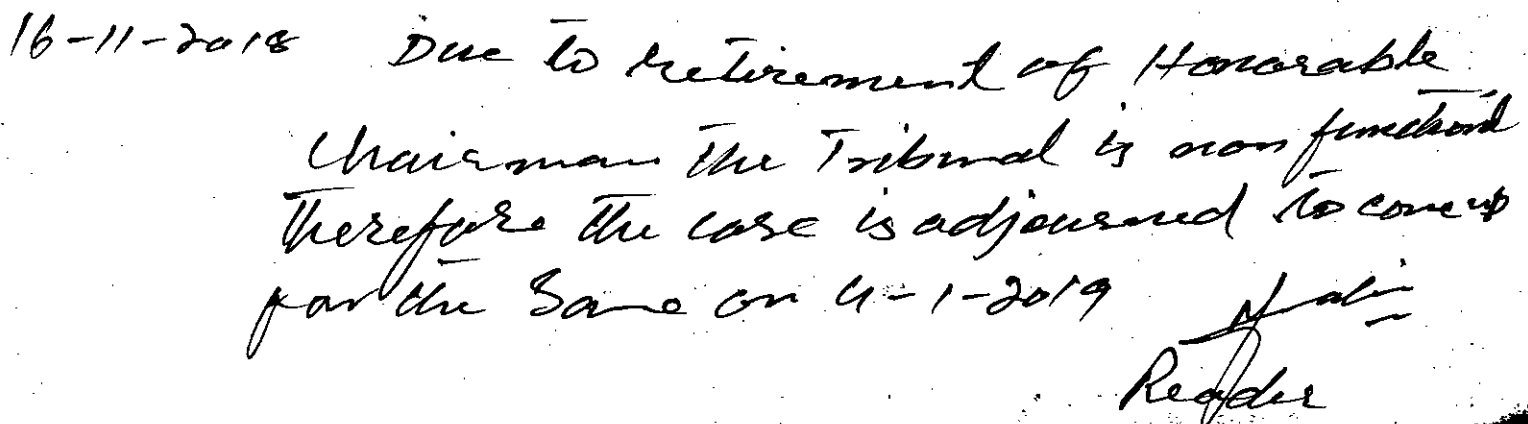 16-11-2018 Due to retirement of Honorable
Chairman the Tribunal is non functional
Therefore the case is adjourned to come up
for the Same on 4-1-2019
Reader